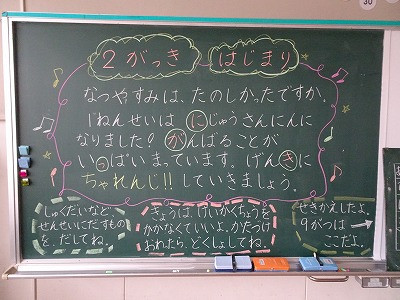 2がっき はじまり
なつやすみは、たのしかったですか。
1ねんせいは にじゅうさんにんに
なりました! がんばることが
いっぱいまっています。げんきに
ちゃれんじ!! していきましょう。
しゅくだいなど、
せんせいにだすもの
を、だしてね。
きょうは、けいかくちょうを
かかなくていいよ。かたつけ
おわたら、どくしょしてね。
せきかえしたよ。
9がつは
ここだよ。
30